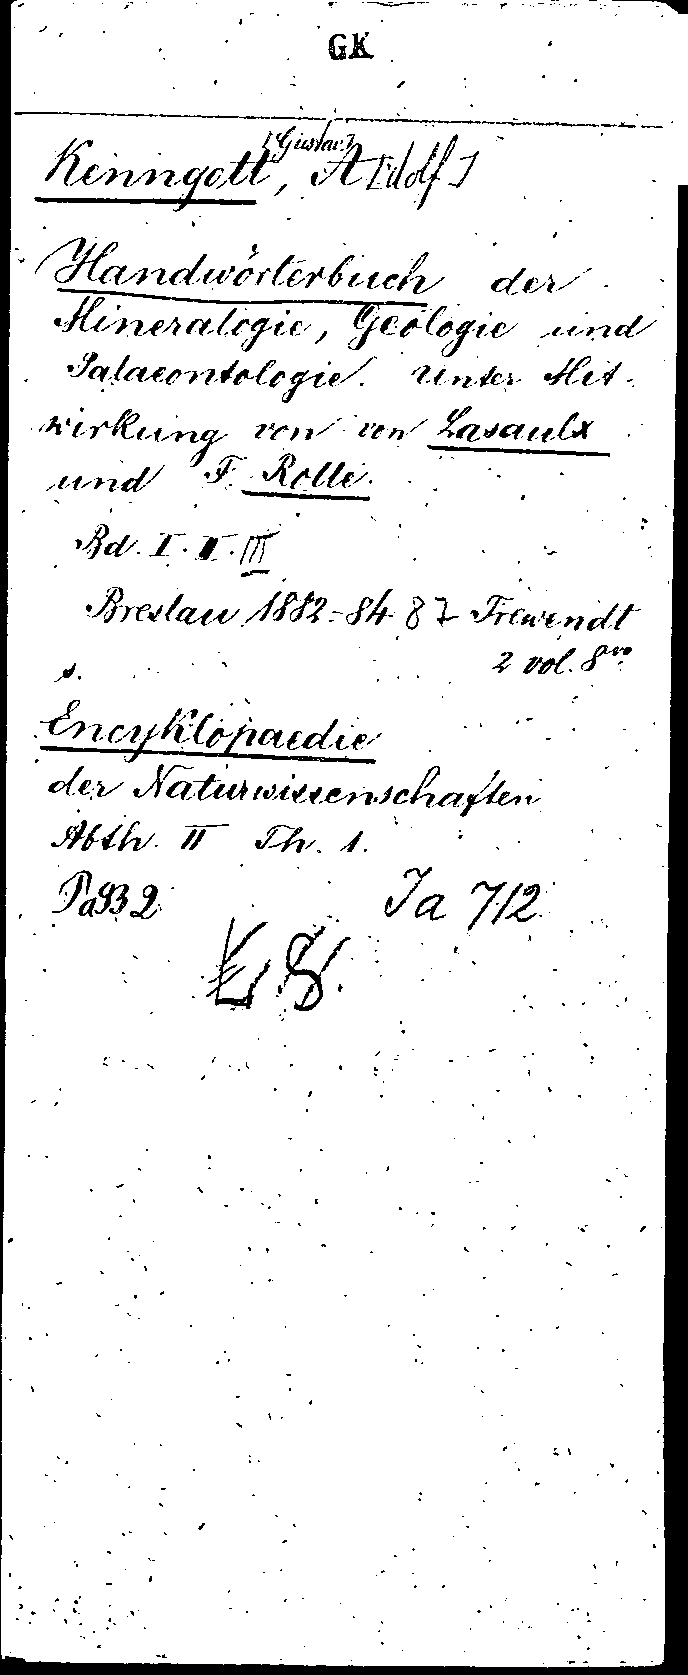 GK
Kenngott, [Gustav] A[dolf]
Handwörterbuch der
Mineralogie, Geologie und
Palaeontologie. Unter Mit-
wirkung von von Lasaulx
und F. Rolle.
Bd. I. II. III
Breslau 1882-84 87 Trewendt
2 vol. 8vo.
s.
Encyklopaedie
der Naturwissenschaften
Abth. II Th. 1.
Pa932 Ja 712